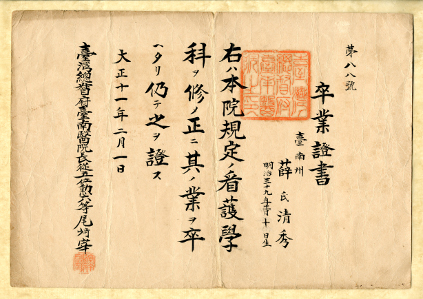 第八八號
卒業證書
臺南州
薛氏清秀
明治三十九年 月十日生
右ハ本院規定ノ看護學
科ヲ修メ正ニ其ノ業ヲ卒
ヘタリ仍テ之ヲ證ス
大正十一年二月一日
臺灣總督府臺南醫院長從五勳 等尾﨑宰